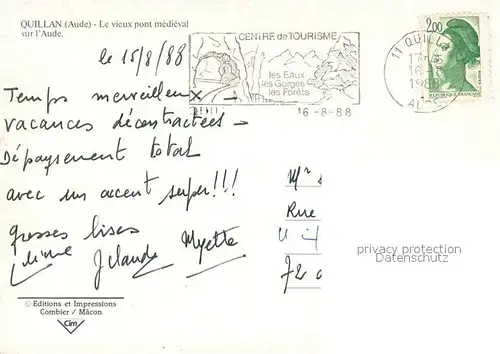 QUILLAN (Aude) - Le vieux pont médiéval
sur l'Aude.
le 15/8/88
CENTRE de TOURISME
les Eaux
les Gorges
les Forêts
16-8-88
11 QUILLAN
17-
16-
1988
AUDE
2,00
REPUBLIQUE FRANÇAISE
Temps merveilleux -
vacances décontractées -
Dépaysement total
avec un accent super!!!
grosses bises
Jclaude Myette
Mr
Rue
72
privacy protection
Datenschutz
© Editions et Impressions
Combier / Mâcon
Cim